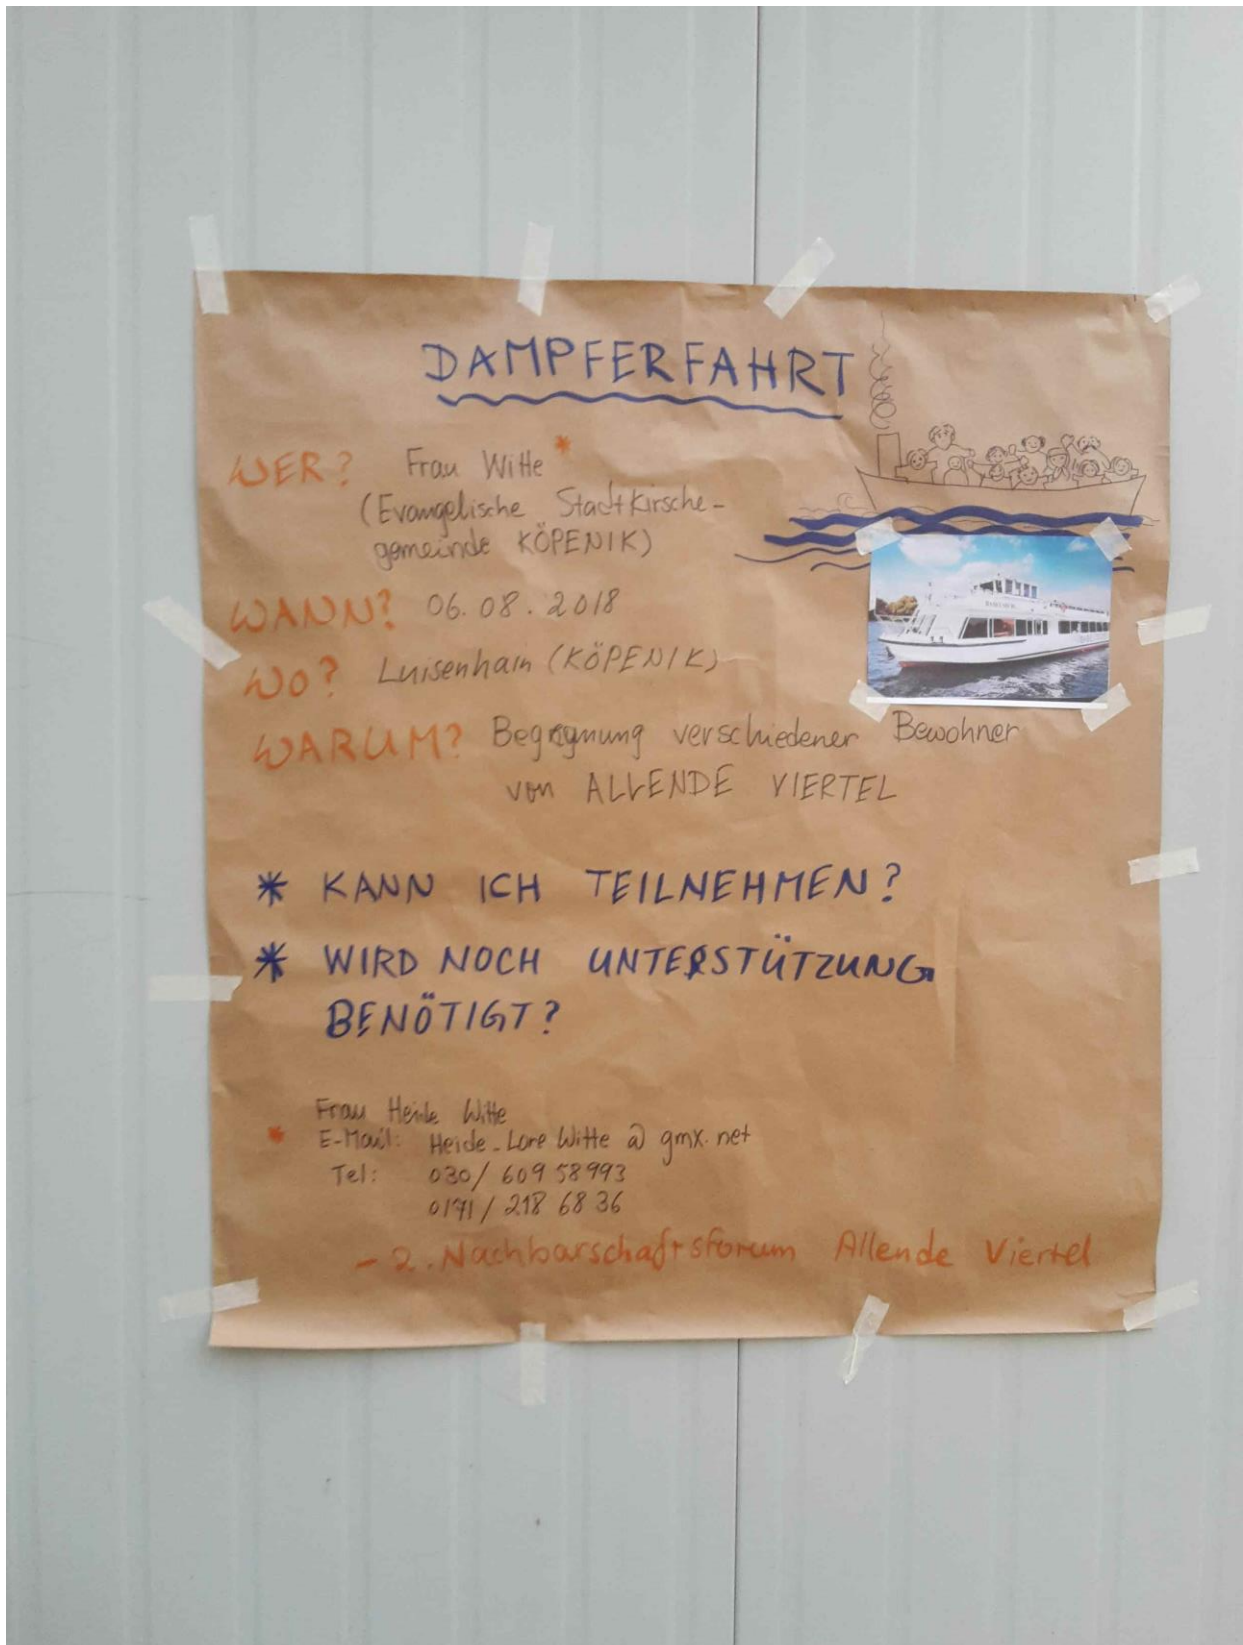 DAMPFERFAHRT
WER? Frau Witte *
(Evangelische Stadtkirsche-
gemeinde KÖPENIK)
WANN? 06.08.2018
WO? Luisenhain (KÖPENIK)
WARUM? Begegnung verschiedener Bewohner
von ALLENDE VIERTEL
* KANN ICH TEILNEHMEN?
* WIRD NOCH UNTERSTÜTZUNG
BENÖTIGT?
Frau Heide Witte
* E-Mail: Heide-Lore Witte @ gmx.net
Tel: 030/ 609 58993
0171/ 218 68 36
- 2. Nachbarschaftsforum Allende Viertel